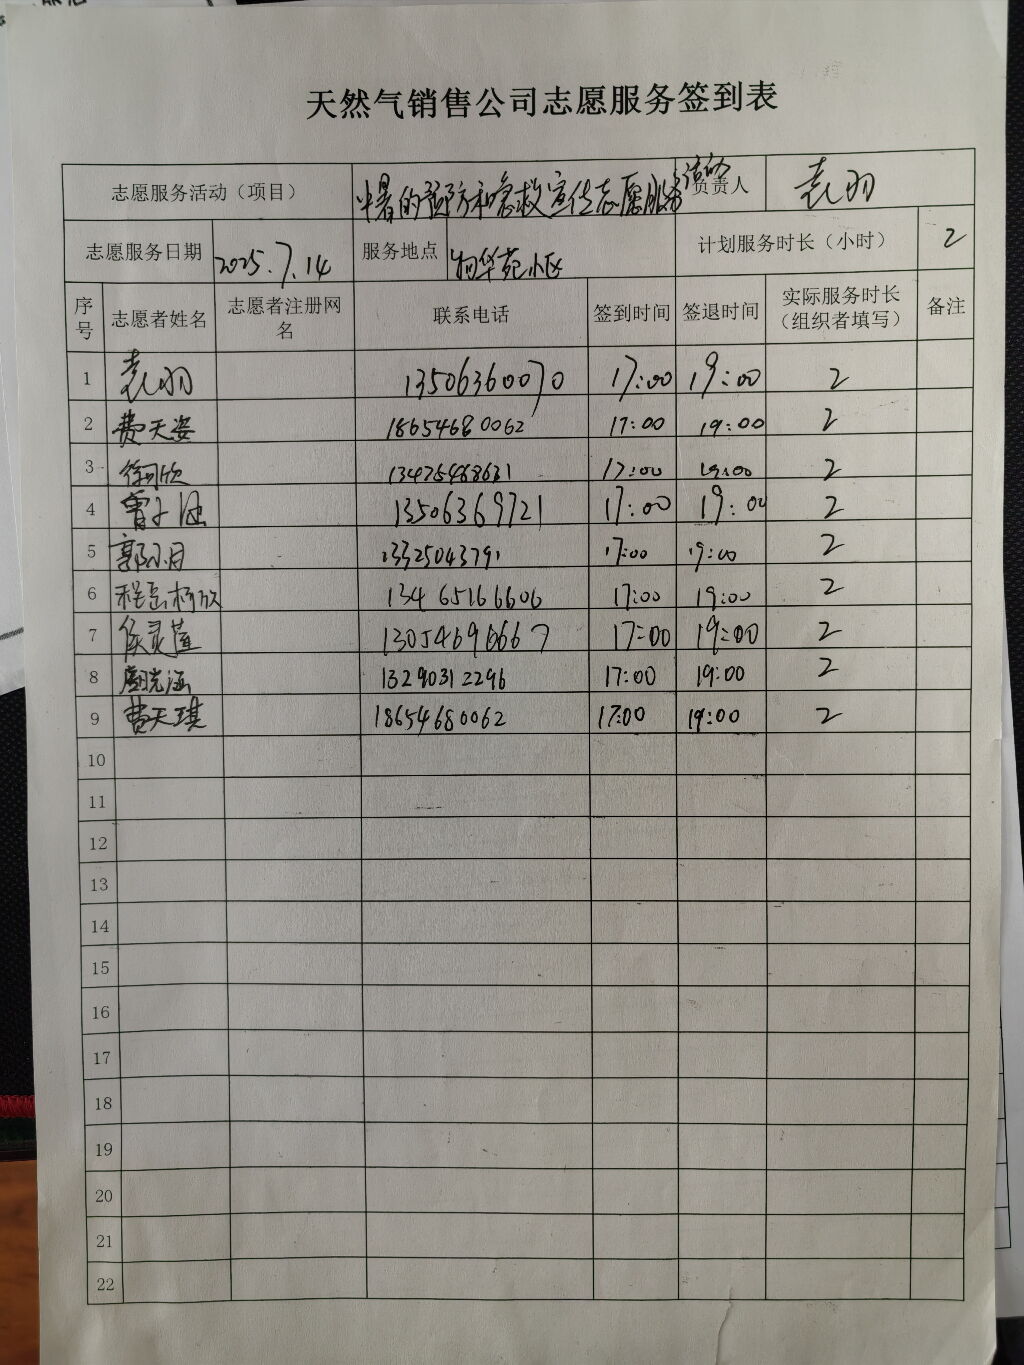 天然气销售公司志愿服务签到表
志愿服务活动（项目） 中暑的预防和急救宣传志愿服务活动 负责人 袁羽
志愿服务日期 2025.7.14 服务地点 物华苑小区 计划服务时长（小时） 2
序号 志愿者姓名 志愿者注册网名 联系电话 签到时间 签退时间 实际服务时长（组织者填写） 备注
1 袁羽 13506360070 17:00 19:00 2
2 费天姿 18654680062 17:00 19:00 2
3 13475488631 17:00 19:00 2
4 曹子涵 13506369721 17:00 19:00 2
5 郭小月 13325043791 17:00 19:00 2
6 13465166606 17:00 19:00 2
7 侯灵萱 13054696667 17:00 19:00 2
8 13290312296 17:00 19:00 2
9 费天琪 18654680062 17:00 19:00 2
10
11
12
13
14
15
16
17
18
19
20
21
22